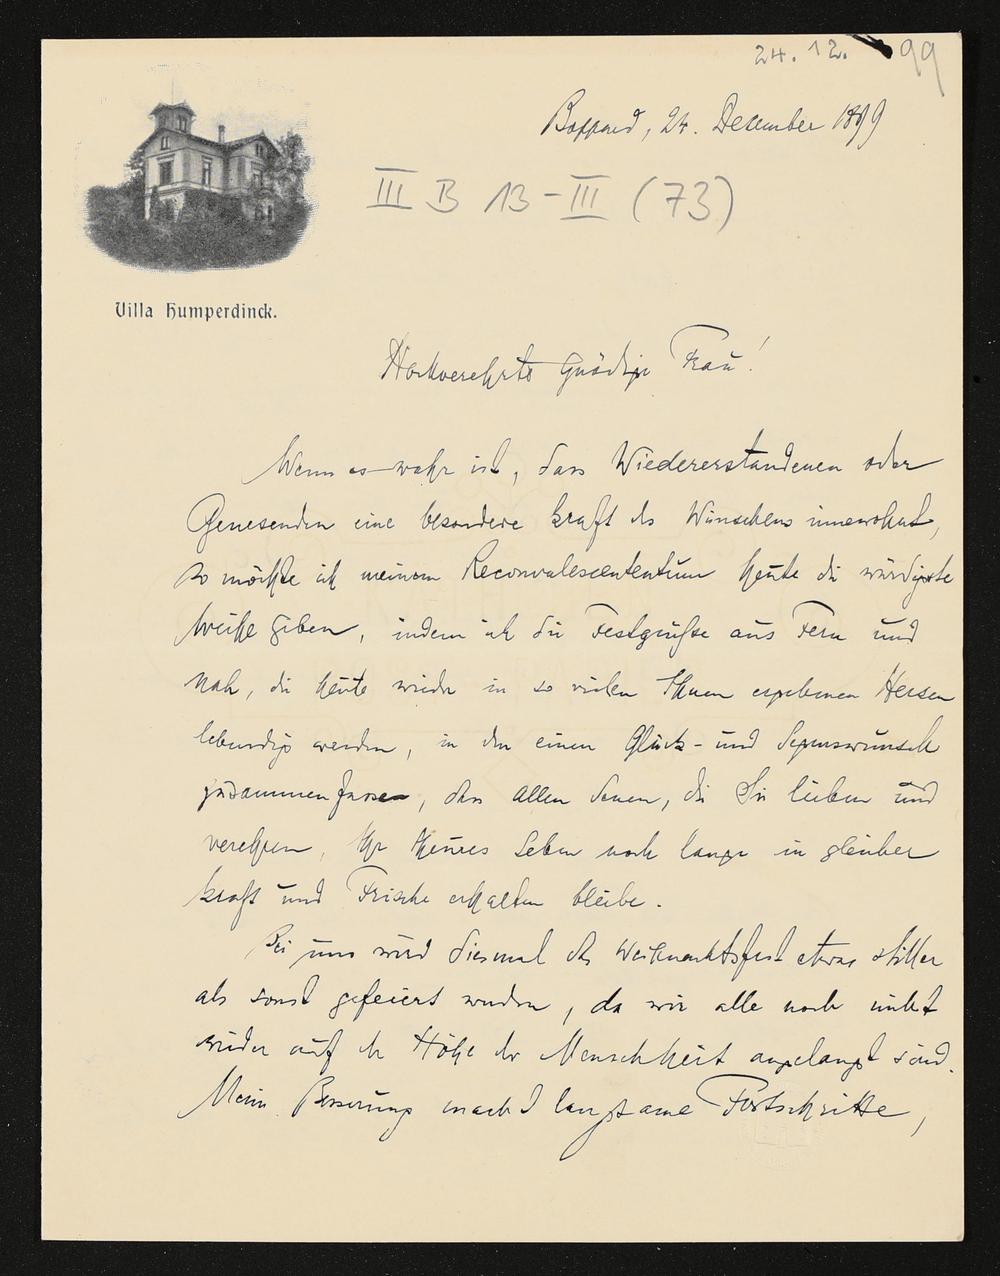 24. 12. 99
Boppard, 24. December 1899
III B 13-III (73)
Villa Humperdinck.
Hochverehrte Gnädige Frau!
Wenn es wahr ist, dass Wiedererstandenen oder
Genesenden eine besondere Kraft des Wünschens innewohnt,
so möchte ich meinem Reconvalescententum heute die würdigste
Weihe geben, indem ich die Festgrüsse aus Fern und
Nah, die heute wieder in so vielen Ihnen ergebenen Herzen
lebendig werden, in den einen Glück- und Segenswunsch
zusammenfasse, dass Allen denen, die Sie lieben und
verehren, Ihr theures Leben noch lange in gleicher
Kraft und Frische erhalten bleibe.
Bei uns wird diesmal das Weihnachtsfest etwas stiller
als sonst gefeiert werden, da wir alle noch nicht
wieder auf der Höhe der Menschheit angelangt sind.
Meine Besserung macht langsame Fortschritte,